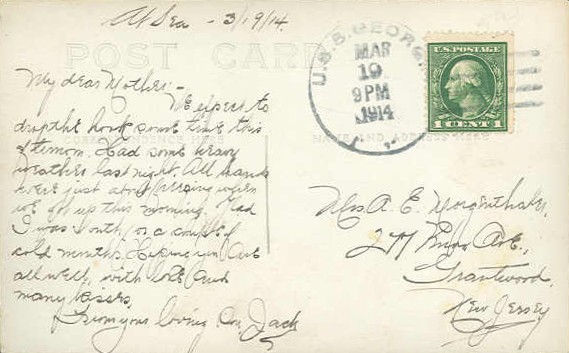 At Sea - 3/19/14.
POST CARD
My dear Mother:-
We expect to
drop the hook some time this
afternoon. Had some heavy
weather last night. All hands
were just about freezing when
we got up this morning. Glad
I was South for a couple of
cold months. Hoping you are
all well, with love and
many kisses,
From your loving son, Jack
U.S.S. GEORG
MAR
19
9 PM
1914
U.S. POSTAGE
1 CENT 1
NAME AND ADDRESS HERE
Mrs A. E. Morgenthaler,
Ave.,
Grantwood,
New Jersey